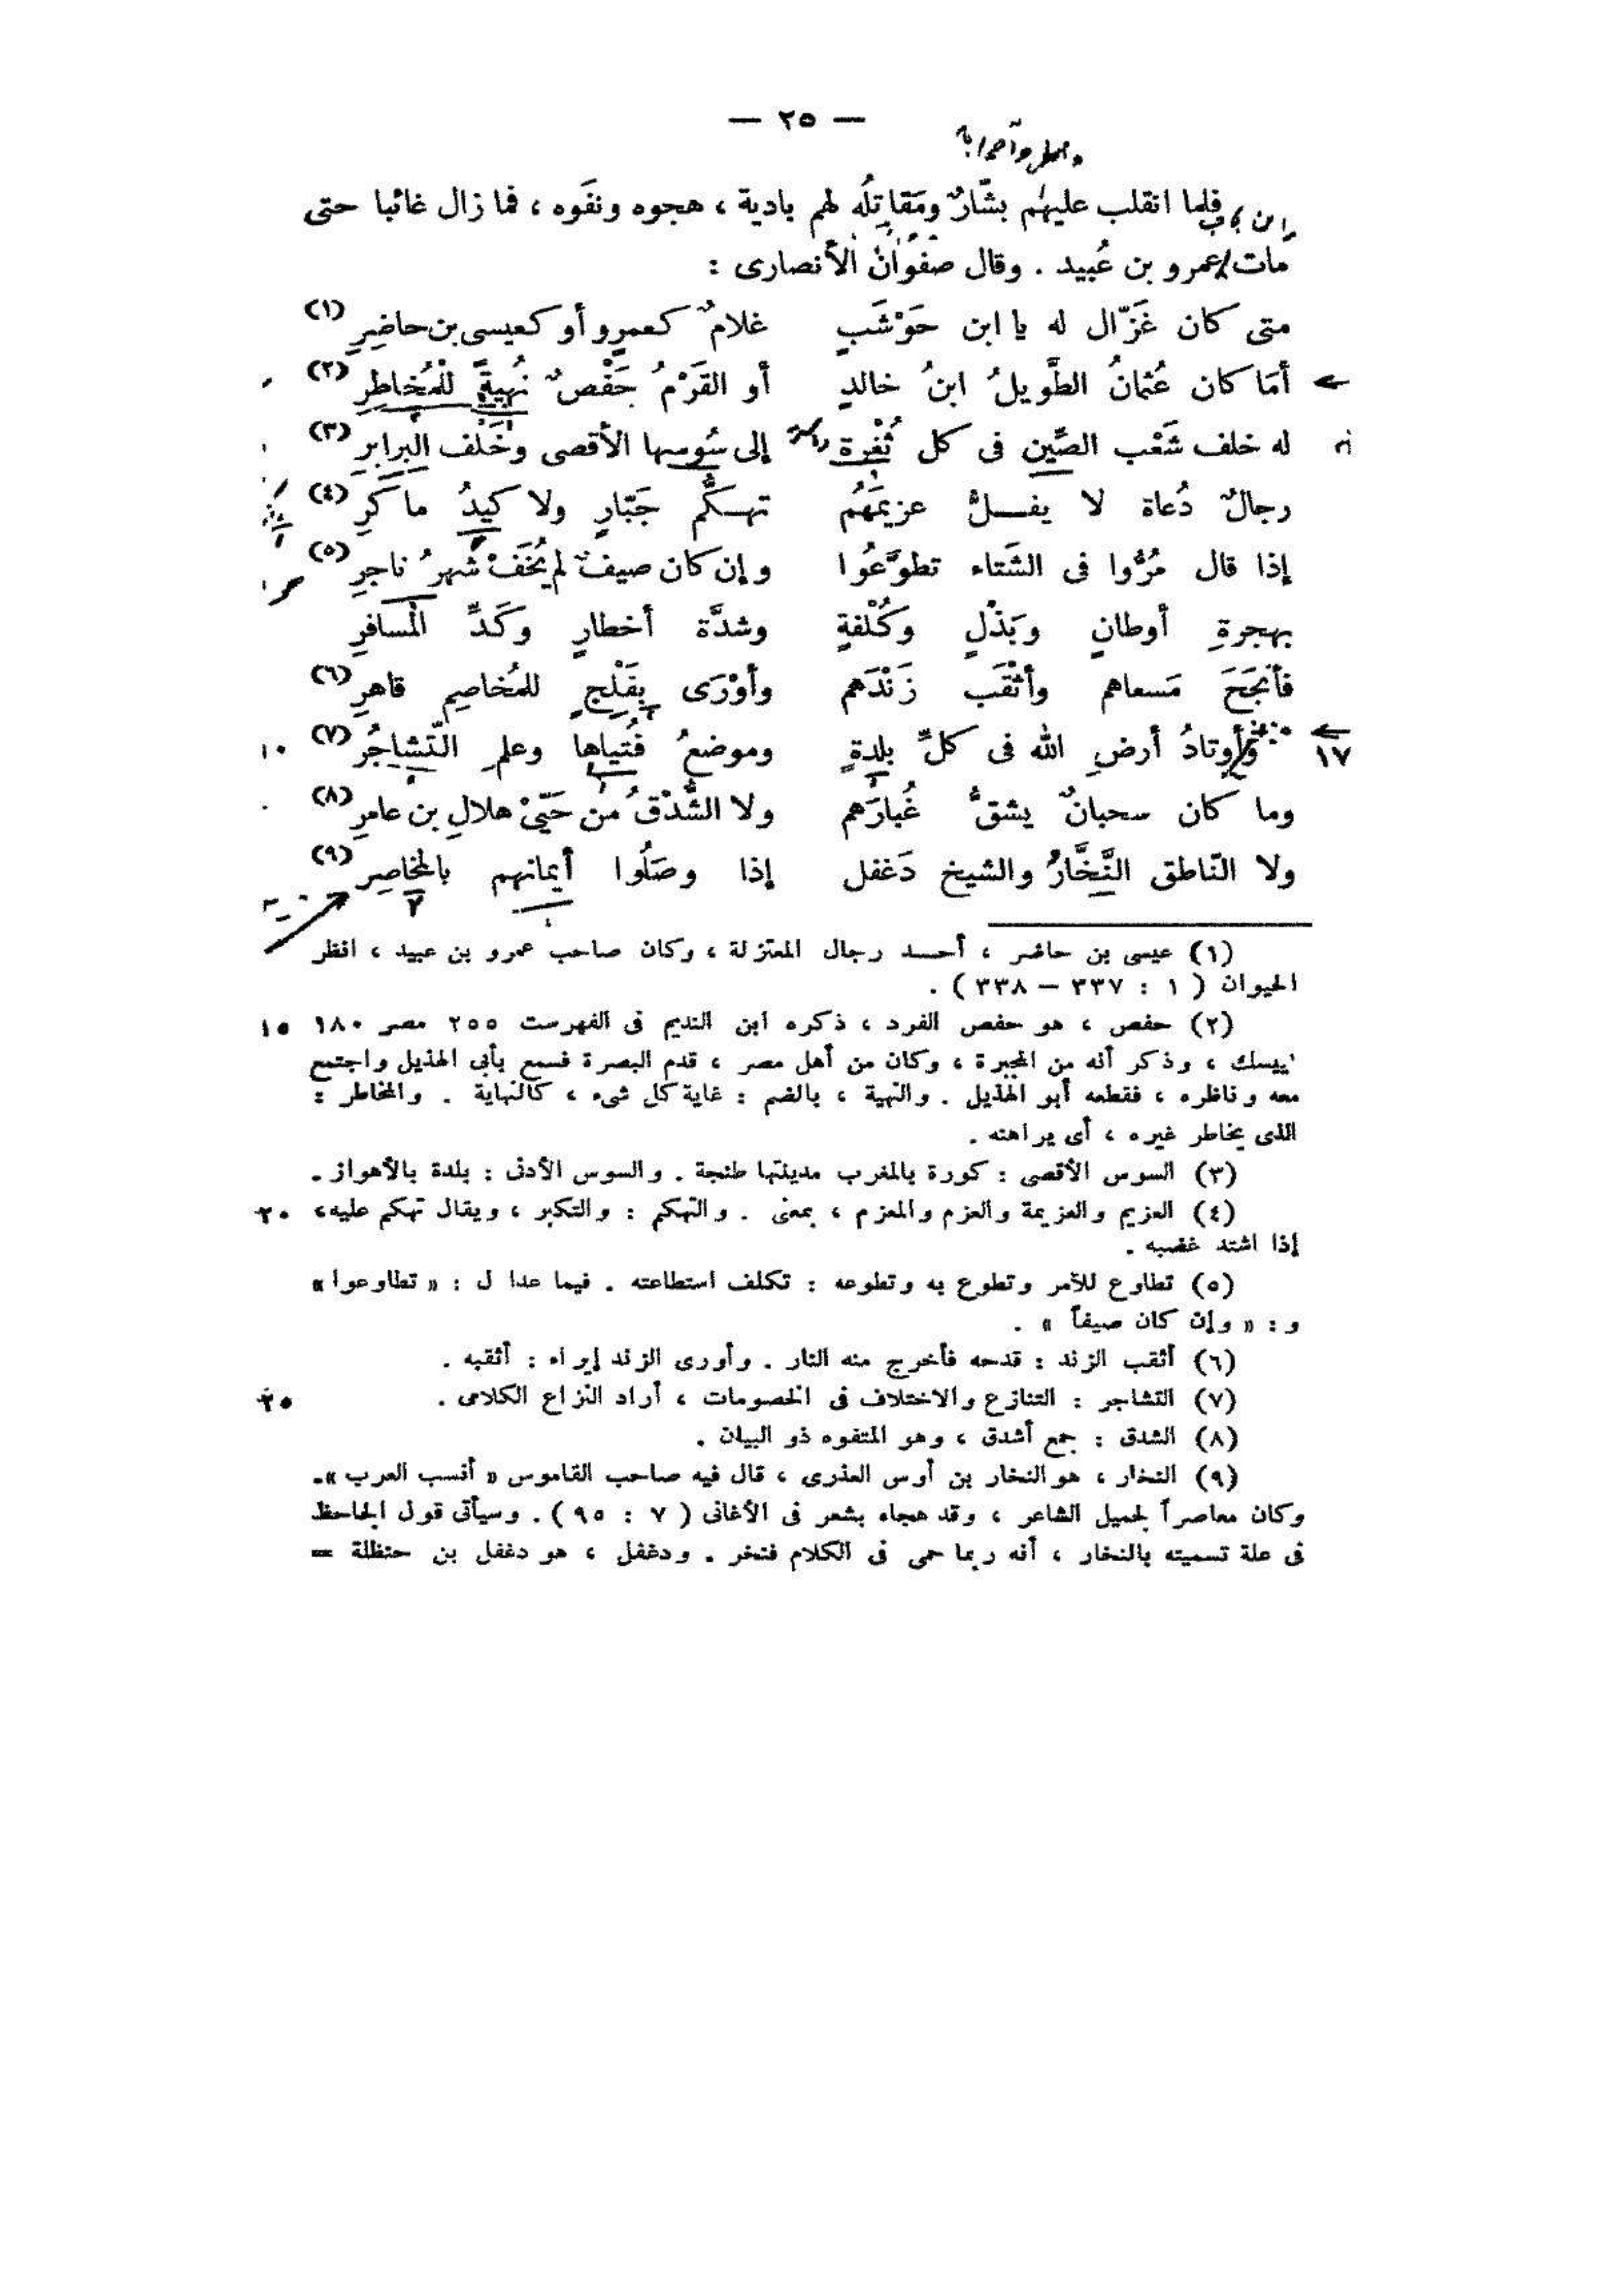 — ٢٥ —
فلما انقلب عليهم بشّارٌ ومَقاتِلُه لهم بادية ، هجوه ونفَوه ، فما زال غائبا حتى
مات عمرو بن عُبيد . وقال صفوانُ الأنصارى :
متى كان غَزّال له يا ابن حَوْشَبٍ غلامٌ كعمرٍو أو كعيسى بن حاضِرِ (١)
أمَا كان عُثمانُ الطَّويلُ ابنُ خالدٍ أو القَرْمُ حَفْصٌ نُهيةً للمُخاطِرِ (٢)
له خلف شَعْب الصِّين فى كل ثُغْرة إلى سُوسها الأقصى وخَلف البرابرِ (٣)
رجالٌ دُعاة لا يفلُّ عزيمَهُم تهكُّم جَبّارٍ ولا كيدُ ماكَرِ (٤)
إذا قال مُرُّوا فى الشَتاء تطوَّعُوا وإن كان صيفٌ لم يُخَفْ شهرُ ناجرِ (٥)
بهجرةِ أوطانٍ وبَذْلٍ وكُلْفةٍ وشدَّة أخطارٍ وكَدِّ المسافرِ
فأنجَحَ مَسعاهم وأثْقَب زَنْدَهم وأوْرَى بِفَلْجٍ للمُخاصِمِ قاهرِ (٦)
١٧ وأوتادُ أرضِ الله فى كلِّ بلدةٍ وموضعُ فُتياها وعلمِ التّشاجُرِ (٧) ١٠
وما كان سحبانٌ يشقُّ غُبارَهم ولا الشُّدْقُ من حَيّىْ هلالِ بن عامرِ (٨)
ولا النّاطق النَّخَّارُ والشيخ دَغفل إذا وصَلُوا أيمانهم بالمخاصِرِ (٩)
(١) عيسى بن حاضر ، أحد رجال المعتزلة ، وكان صاحب عمرو بن عبيد ، انظر
الحيوان ( ١ : ٣٣٧ – ٣٣٨ ) .
(٢) حفص ، هو حفص الفرد ، ذكره ابن النديم فى الفهرست ٢٥٥ مصر ١٨٠ ١٥
ييسك ، وذكر أنه من المجبرة ، وكان من أهل مصر ، قدم البصرة فسمع بأبى الهذيل واجتمع
معه وناظره ، فقطعه أبو الهذيل . والنهية ، بالضم : غاية كل شىء ، كالنهاية . والمخاطر :
الذى يخاطر غيره ، أى يراهنه .
(٣) السوس الأقصى : كورة بالمغرب مدينتها طنجة . والسوس الأدنى : بلدة بالأهواز .
(٤) العزيم والعزيمة والعزم والمعزم ، بمعنى . والتهكم : والتكبر ، ويقال تهكم عليه، ٢٠
إذا اشتد غضبه .
(٥) تطاوع للأمر وتطوع به وتطوعه : تكلف استطاعته . فيما عدا ل : « تطاوعوا »
و : « وإن كان صيفاً » .
(٦) أثقب الزند : قدحه فأخرج منه النار . وأورى الزند إيراء : أثقبه .
(٧) التشاجر : التنازع والاختلاف فى الخصومات ، أراد النزاع الكلامى . ٢٥
(٨) الشدق : جمع أشدق ، وهو المتفوه ذو البيان .
(٩) النخار ، هو النخار بن أوس العذرى ، قال فيه صاحب القاموس « أنسب العرب ».
وكان معاصراً لجميل الشاعر ، وقد هجاه بشعر فى الأغانى ( ٧ : ٩٥ ) . وسيأتى قول الجاحظ
فى علة تسميته بالنخار ، أنه ربما حمى فى الكلام فنخر . ودغفل ، هو دغفل بن حنظلة =